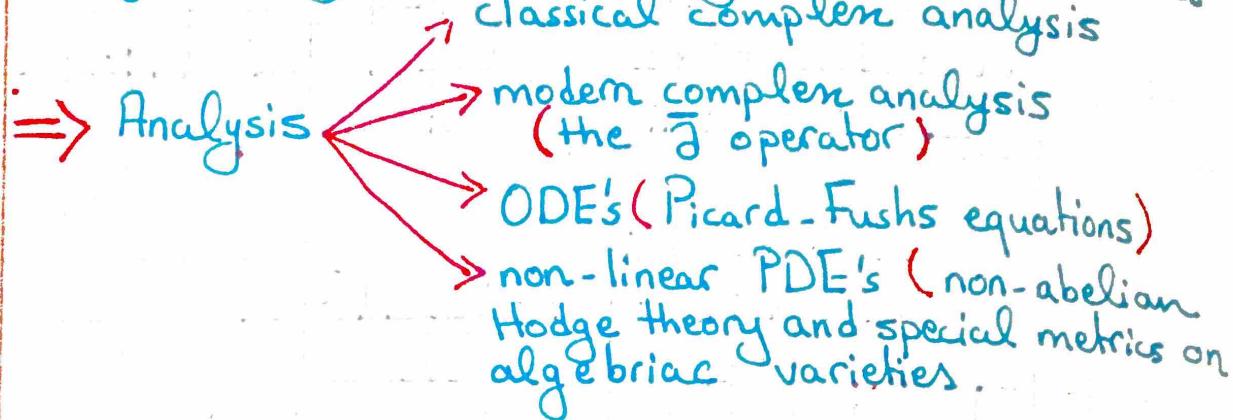 classical complex analysis
⇒ Analysis
modern complex analysis
(the ∂̄ operator)
ODE's (Picard-Fushs equations)
non-linear PDE's (non-abelian
Hodge theory and special metrics on
algebriac varieties.